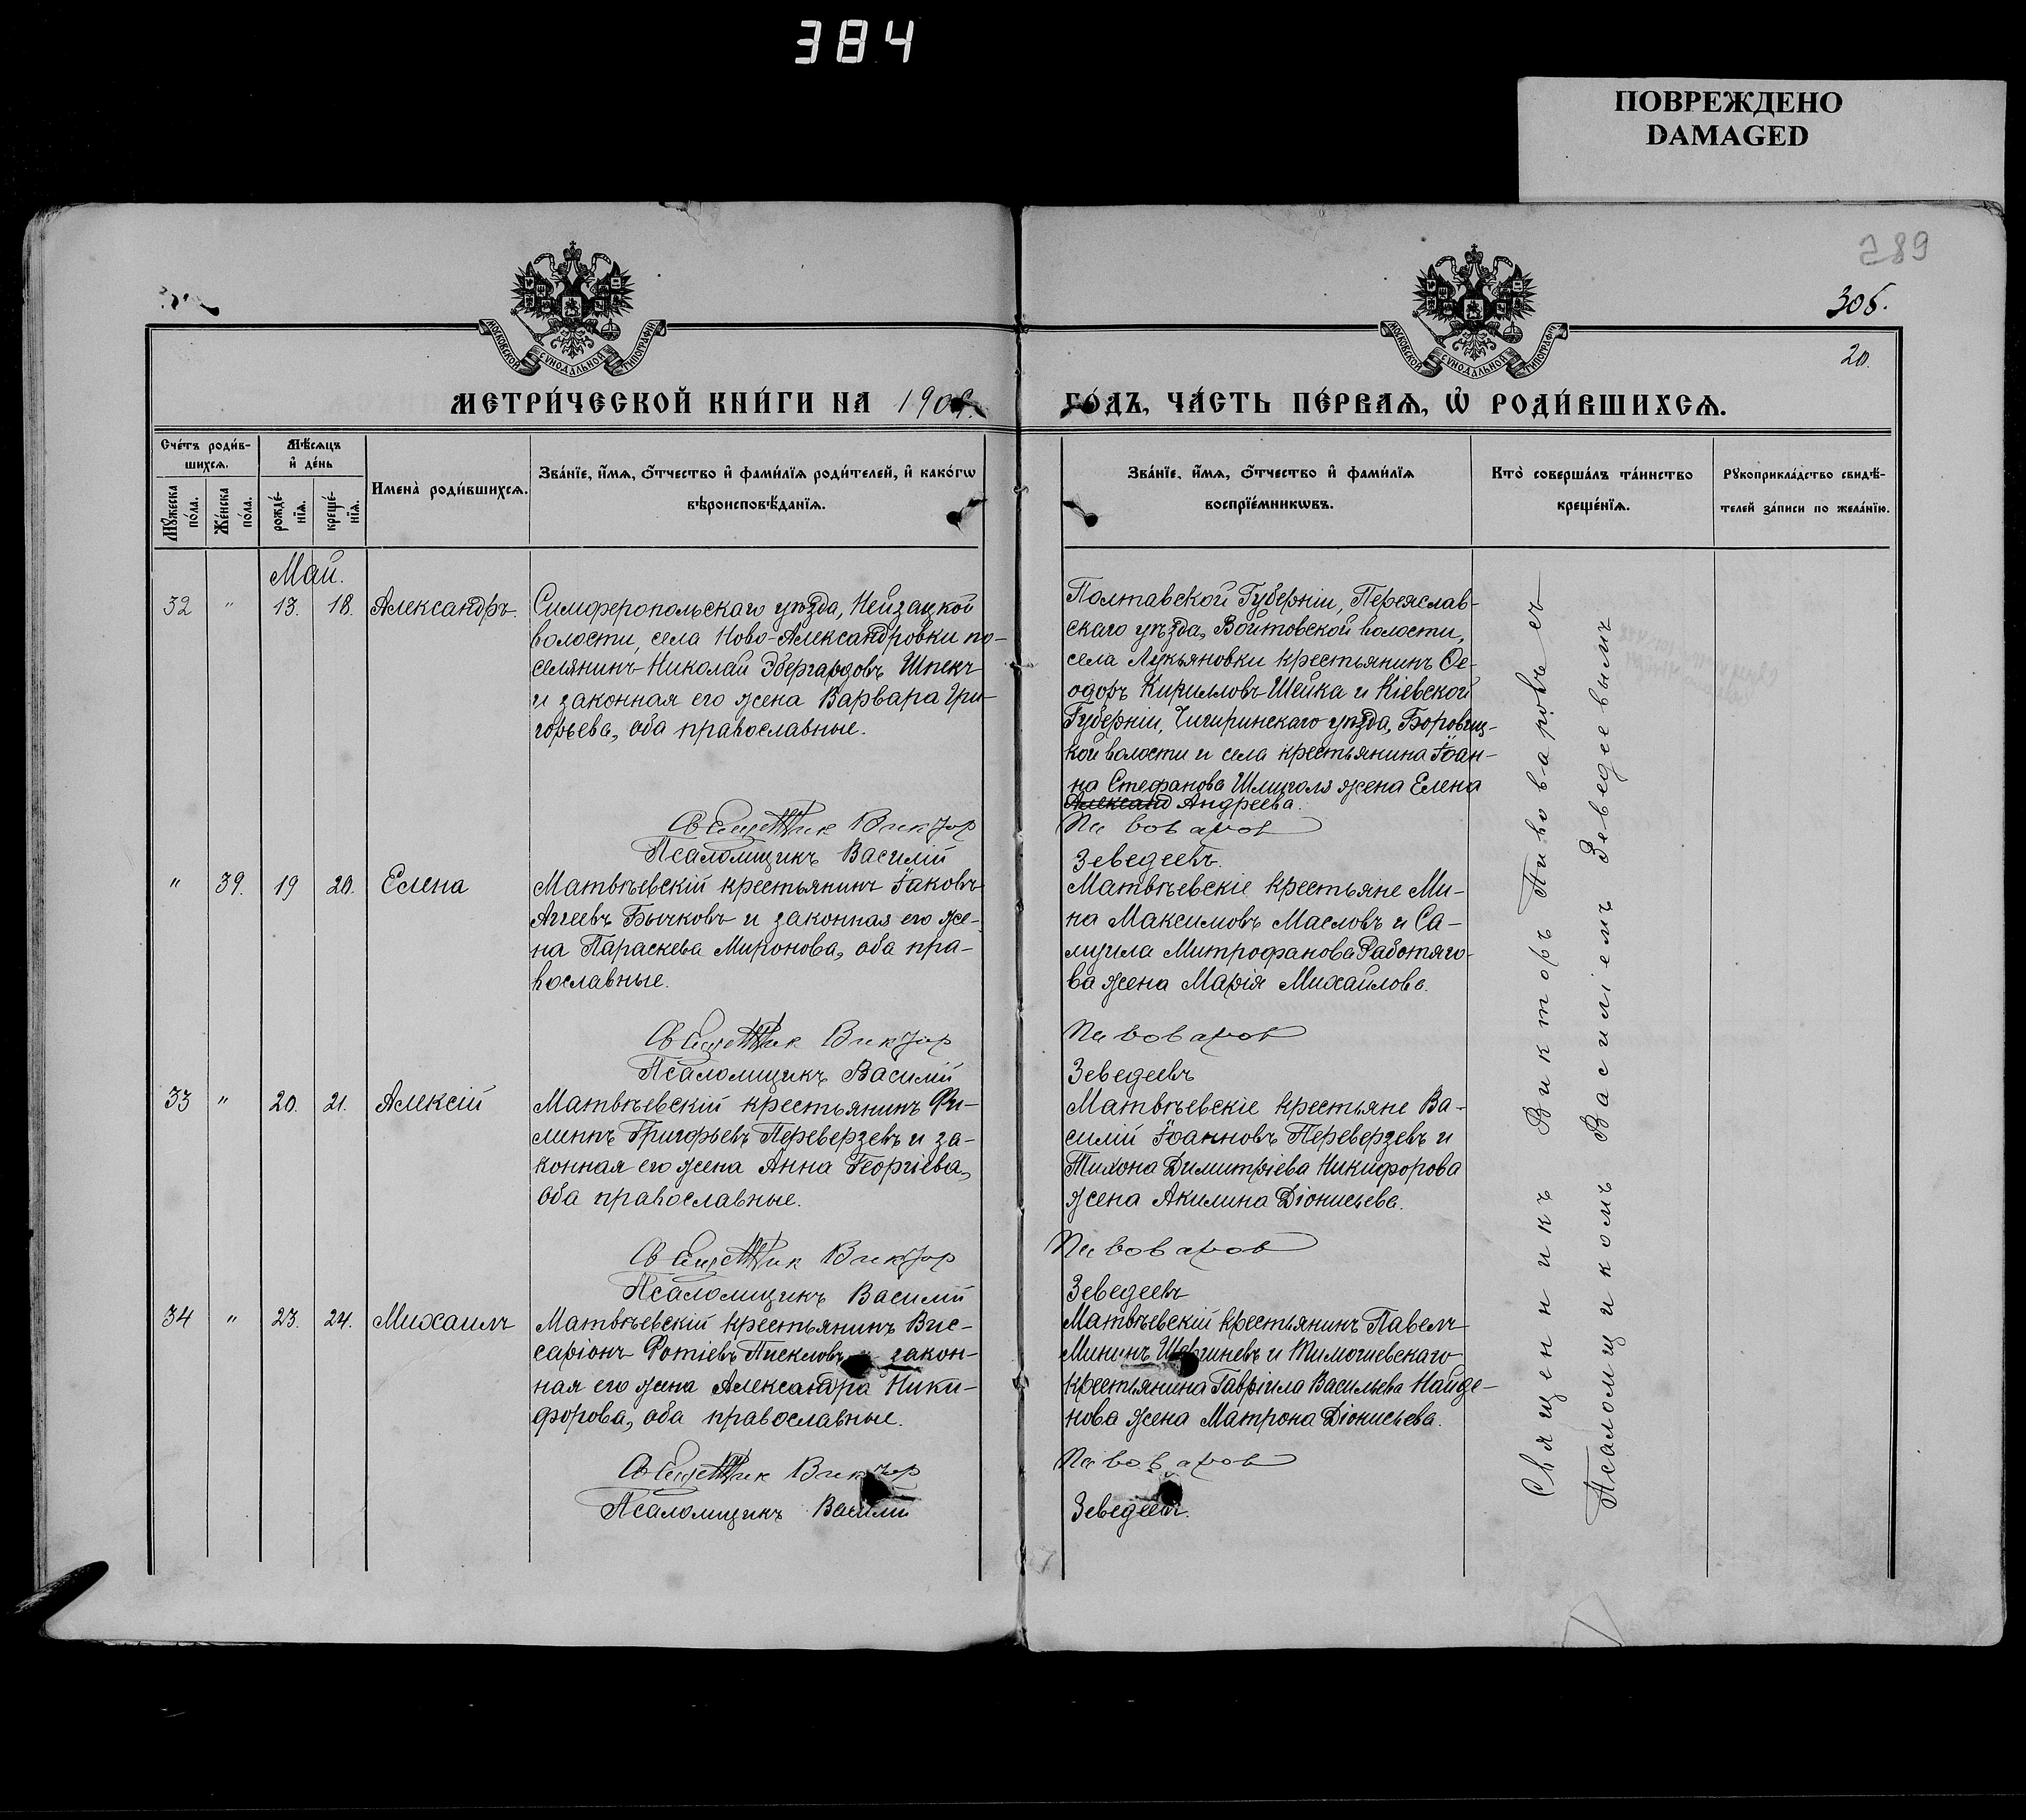 384
ПОВРЕЖДЕНО
DAMAGED
289
305.
20.
МОСКОВСКОЙ СѴНОДАЛЬНОЙ ТИПОГРАФІИ
МОСКОВСКОЙ СѴНОДАЛЬНОЙ ТИПОГРАФІИ
МЕТРИ́ЧЕСКОЙ КНИ́ГИ НА 190
ГО́ДЪ, ЧА́СТЬ ПЕ́РВАѦ, Ѡ҆ РОДИ́ВШИХСѦ.
Сче́тъ роди́в-
шихсѧ.
Мѣ́сѧцъ
и҆ де́нь
Мꙋ́жеска по́ла.
Же́нска по́ла.
рожде́-нїѧ.
креще́-нїѧ.
Имена̀ роди́вшихсѧ.
Зва́нїе, и҆́мѧ, ѻ҆́тчество и҆ фами́лїѧ роди́телей, и҆ како́гѡ
вѣроисповѣ́данїѧ.
Зва́нїе, и҆́мѧ, ѻ҆́тчество и҆ фами́лїѧ
воспрїе́мникѡвъ.
Кто̀ соверша́лъ та́инство
креще́нїѧ.
Рꙋкоприкла́дство свидѣ́-
телей за́писи по жела́нїю.
Май.
32 " 13. 18. Александръ.
Симферопольскаго уѣзда, Нейзацкой
волости, села Ново-Александровки по-
селянинъ Николай Эбергардовъ Шпекъ
и законная его жена Варвара Гри-
горьева, оба православные.
Священник Виктор
Псаломщикъ Василій
Полтавской Губерніи, Переяслав-
скаго уѣзда, Войтовской волости,
села Лукьяновки крестьянинъ Ѳе-
одоръ Кирилловъ Шейка и Кіевской
Губерніи, Чигиринскаго уѣзда, Боровиц-
кой волости и села крестьянина Іоан-
на Стефанова жена Елена
Александ Андреева.
Пивоваров
Зеведеевъ.
" 39. 19 20. Елена
Матвѣевскій крестьянинъ Іаковъ
Агеевъ Бычковъ и законная его же-
на Параскева Миронова, оба пра-
вославные.
Священник Виктор
Псаломщикъ Василій
Матвѣевскіе крестьяне Ми-
на Максимовъ Масловъ и Са-
муила Митрофанова Работяго-
ва жена Марія Михайлова.
Пивоваров
Зеведеевъ
33 " 20. 21. Алексій
Матвѣевскій крестьянинъ Фи-
липпъ Григорьевъ Переверзевъ и за-
конная его жена Анна Георгіева,
оба православные.
Священник Виктор
Псаломщикъ Василій
Матвѣевскіе крестьяне Ва-
силій Іоанновъ Переверзевъ и
Тихона Димитріева Никифорова
жена Акилина Діонисьева.
Пивоваров
Зеведеевъ
34 " 23. 24. Михаилъ
Матвѣевскій крестьянинъ Вис-
саріонъ Фотіевъ и закон-
ная его жена Александра Ники-
форова, оба православные.
Священник Виктор
Псаломщикъ Василій
Матвѣевскій крестьянинъ Павелъ
Мининъ и Тимошевскаго
крестьянина Гавріила Васильева Найде-
нова жена Матрона Діонисьева.
Пивоваров
Зеведеевъ.
Священникъ Викторъ Пивоваровъ съ
Псаломщикомъ Василіемъ Зеведеевымъ